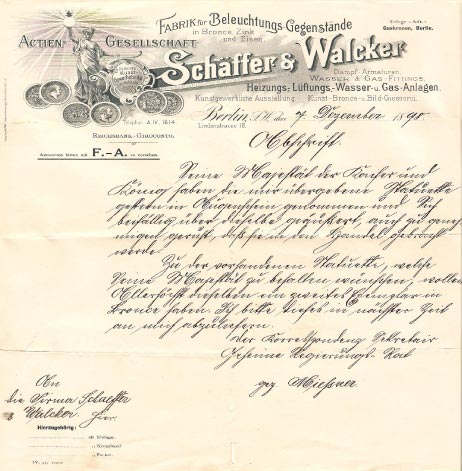 FABRIK für Beleuchtungs-Gegenstände
in Bronce, Zink
und Eisen.
Telegr.-Adr.:
Gaskronen, Berlin.
ACTIEN GESELLSCHAFT
Schäffer & Walcker
Dampf-Armaturen,
WASSER & GAS-FITTINGS,
Heizungs-, Lüftungs-, Wasser- u. Gas-Anlagen.
Kunstgewerbliche Ausstellung. Kunst-Bronce- u. Bild-Giesserei.
Telephon A. IV. 1614
Lindenstrasse 18.
Berlin, S.W. den 7. Dezember 1898.
REICHSBANK-GIROCONTO.
Antworten bitten mit F.-A. zu versehen.
Abschrift.
Seine Majestät der Kaiser und
König haben die mir übergebene Statuette
gestern in Augenschein genommen und Sich
beifällig über dieselbe geäußert, auch zu geneh
migen geruht, daß sie in den Handel gebracht
werde.
Zu der vorhandenen Statuette, welche
Seine Majestät zu behalten wünschen, wollen
Allerhöchst dieselben ein zweites Exemplar in
Bronce haben. Ich bitte dieses in nächster Zeit
an mich abzuliefern.
Der Korrespondenz Sekretair
Geheime Regierungs-Rat
gez. Miessner
An
die Firma Schaeffer
& Walcker hier.
Hierzugehörig:
als Beilage.
„ Kreuzband
„ Packet.